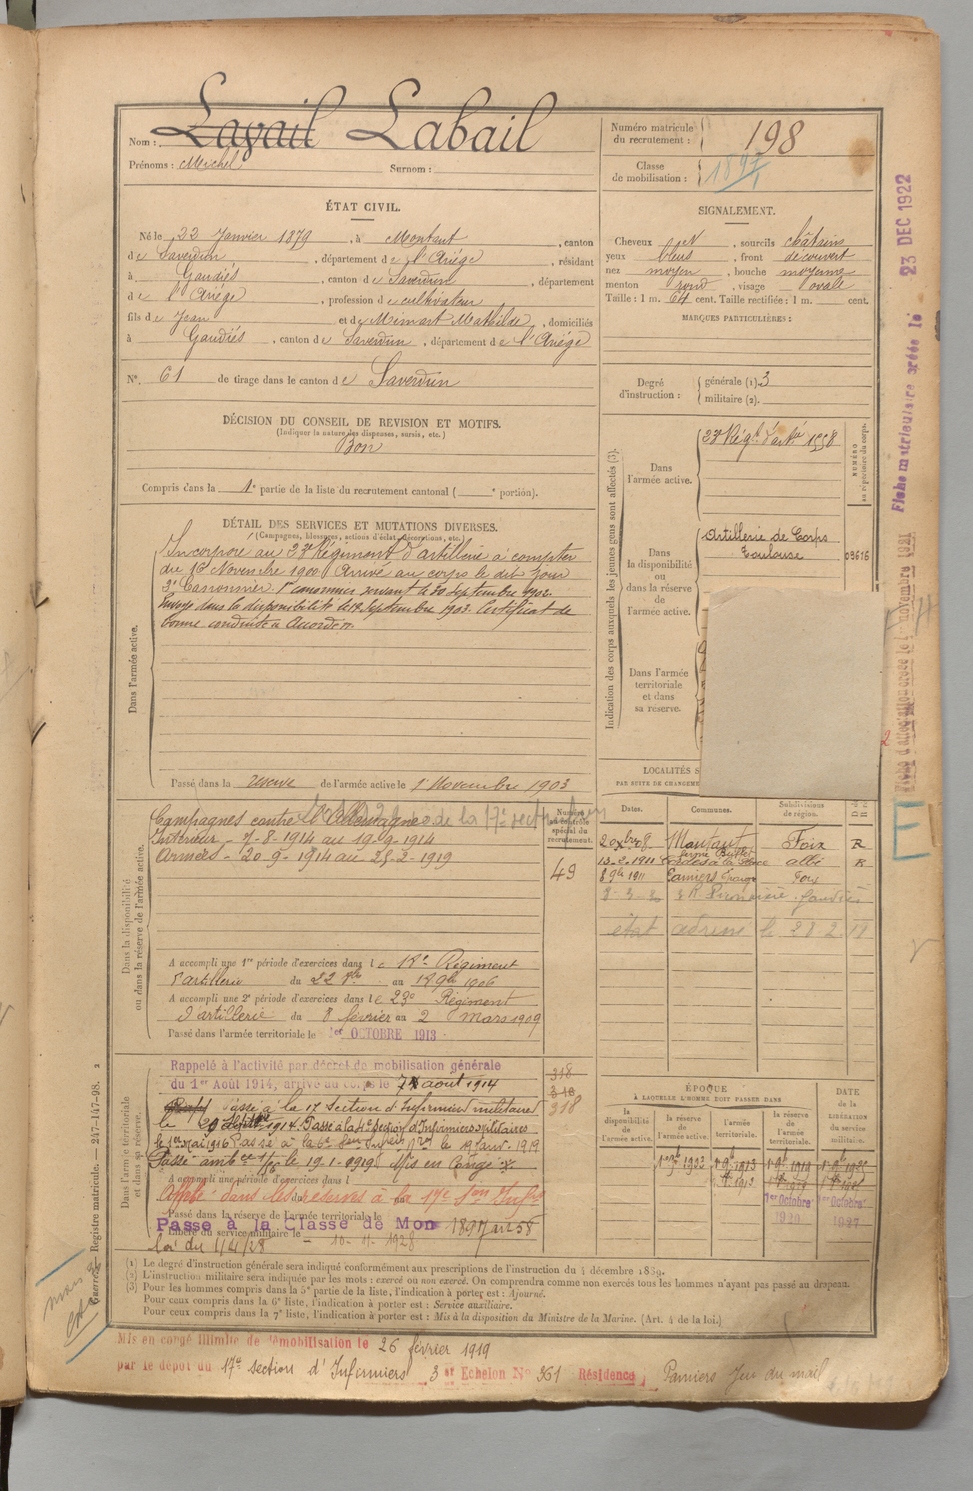 Nom : Lavail Labail
Prénoms : Michel Surnom :
Numéro matricule du recrutement : 198
Classe de mobilisation : 1897
ÉTAT CIVIL.
Né le 22 Janvier 1879, à Montaut, canton
de Saverdun, département de l'Ariège, résidant
à Gaudiès, canton de Saverdun, département
de l'Ariège, profession de cultivateur
fils de Jean et de Mimart Mathilde, domiciliés
à Gaudiès, canton de Saverdun, département de l'Ariège
N° 61 de tirage dans le canton de Saverdun
SIGNALEMENT.
Cheveux , sourcils châtains
yeux bleus, front découvert
nez moyen, bouche moyenne
menton rond, visage ovale
Taille : 1 m. 64 cent. Taille rectifiée : 1 m. cent.
MARQUES PARTICULIÈRES :
Degré d'instruction : générale (1). 3
militaire (2).
DÉCISION DU CONSEIL DE REVISION ET MOTIFS.
(Indiquer la nature des dispenses, sursis, etc.)
Bon
Compris dans la 1e partie de la liste du recrutement cantonal ( e portion).
DÉTAIL DES SERVICES ET MUTATIONS DIVERSES.
(Campagnes, blessures, actions d'éclat, décorations, etc.)
Dans l'armée active.
Incorporé au 23e Régiment d'artillerie à compter
du 16 Novembre 1900 Arrivé au corps le dit jour
2e Canonnier. 1er canonnier servant le 20 septembre 1902.
Envoyé dans la disponibilité le 18 Septembre 1903. Certificat de
bonne conduite Accordé.
Passé dans la réserve de l'armée active le 1er Novembre 1903
Indication des corps auxquels les jeunes gens sont affectés (3).
Dans l'armée active.
23e Régt d'artie 1558
NUMÉRO au répertoire du corps.
Dans la disponibilité ou dans la réserve de l'armée active.
Artillerie de Corps
Toulouse
09616
Dans l'armée territoriale et dans sa réserve.
LOCALITÉS S
PAR SUITE DE CHANGEME
Dates. Communes. Subdivisions de région.
Montaut Foix R
13-2-1911 Albi R
8 9bre 1911 Pamiers Foix
état adresse le 28 2
Dans la disponibilité ou dans la réserve de l'armée active.
Campagnes contre l'Allemagne de la 17e section
Intérieur - 7-8-1914 au 19-9-1914
Armées - 20-9-1914 au 25-2-1919
Numéro au contrôle spécial du recrutement.
49
A accompli une 1re période d'exercices dans le 18e Régiment
d'artillerie du 22 8bre au 18 9bre 1906
A accompli une 2e période d'exercices dans le 23e Régiment
d'artillerie du 8 février au 2 mars 1909
Passé dans l'armée territoriale le 1er OCTOBRE 1913
Dans l'armée territoriale et dans sa réserve.
Rappelé à l'activité par décret de mobilisation générale
du 1er Août 1914, arrivé au corps le août 1914
Passé à la 17 Section d'Infirmiers militaires
le 1914. Passé à la 4e Section d'Infirmiers militaires
le 1er Mai 1916 Passé à la 6e le 19 Janv. 1919
Passé le 19-1-1919 Mis en Congé
A accompli une période d'exercices dans l
Affecté dans les réserves à la 17e Son Infrs
Passé dans la réserve de l'armée territoriale le
Passé à la Classe de Mon 1897 art 58
Libéré du service militaire le 10-11-1928
loi du 1/4/28
318
318
318
ÉPOQUE
À LAQUELLE L'HOMME DOIT PASSER DANS
la disponibilité de l'armée active.
la réserve de l'armée active.
l'armée territoriale.
la réserve de l'armée territoriale.
DATE de la LIBÉRATION du service militaire.
1er 9bre 1903 1er 9bre 1913 1er 9bre 1919
1er Octobre 1920
1er Octobre 1927
(1) Le degré d'instruction générale sera indiqué conformément aux prescriptions de l'instruction du 4 décembre 1889.
(2) L'instruction militaire sera indiquée par les mots : exercé ou non exercé. On comprendra comme non exercés tous les hommes n'ayant pas passé au drapeau.
(3) Pour les hommes compris dans la 5e partie de la liste, l'indication à porter est : Ajourné.
Pour ceux compris dans la 6e liste, l'indication à porter est : Service auxiliaire.
Pour ceux compris dans la 7e liste, l'indication à porter est : Mis à la disposition du Ministre de la Marine. (Art. 4 de la loi.)
Mis en congé illimité de démobilisation le 26 février 1919
par le dépôt du 17e section d'Infirmiers 3e Echelon No 361 Résidence Pamiers Jeu du mail
Guerre. — Registre matricule. — 247-147-98. 2
Fiche matriculaire créée le 23 DEC 1922